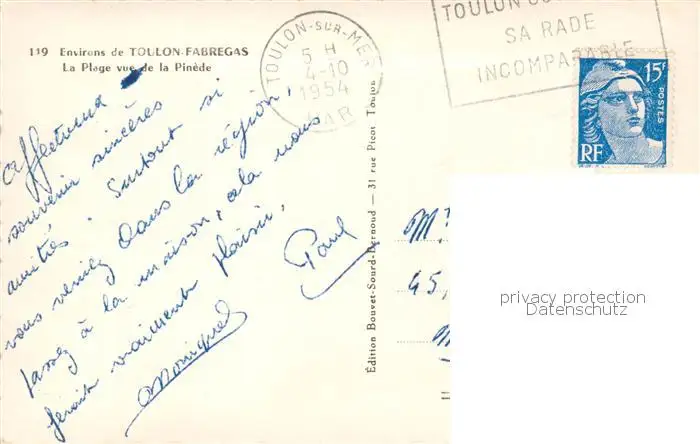 119 Environs de TOULON-FABREGAS
La Plage vue de la Pinède
TOULON-SUR-MER
5 H
4-10
1954
VAR
TOULON
SA RADE
INCOMPARABLE
15F
POSTES
RF
Affectueux
souvenir sincères
amitiés. Surtout si
vous veniez dans la région,
passez à la maison, cela nous
ferait vraiment plaisir.
Paul
Monique
Édition Bouvet-Sourd-Bernoud — 31 rue Picot Toulon
45,
privacy protection
Datenschutz